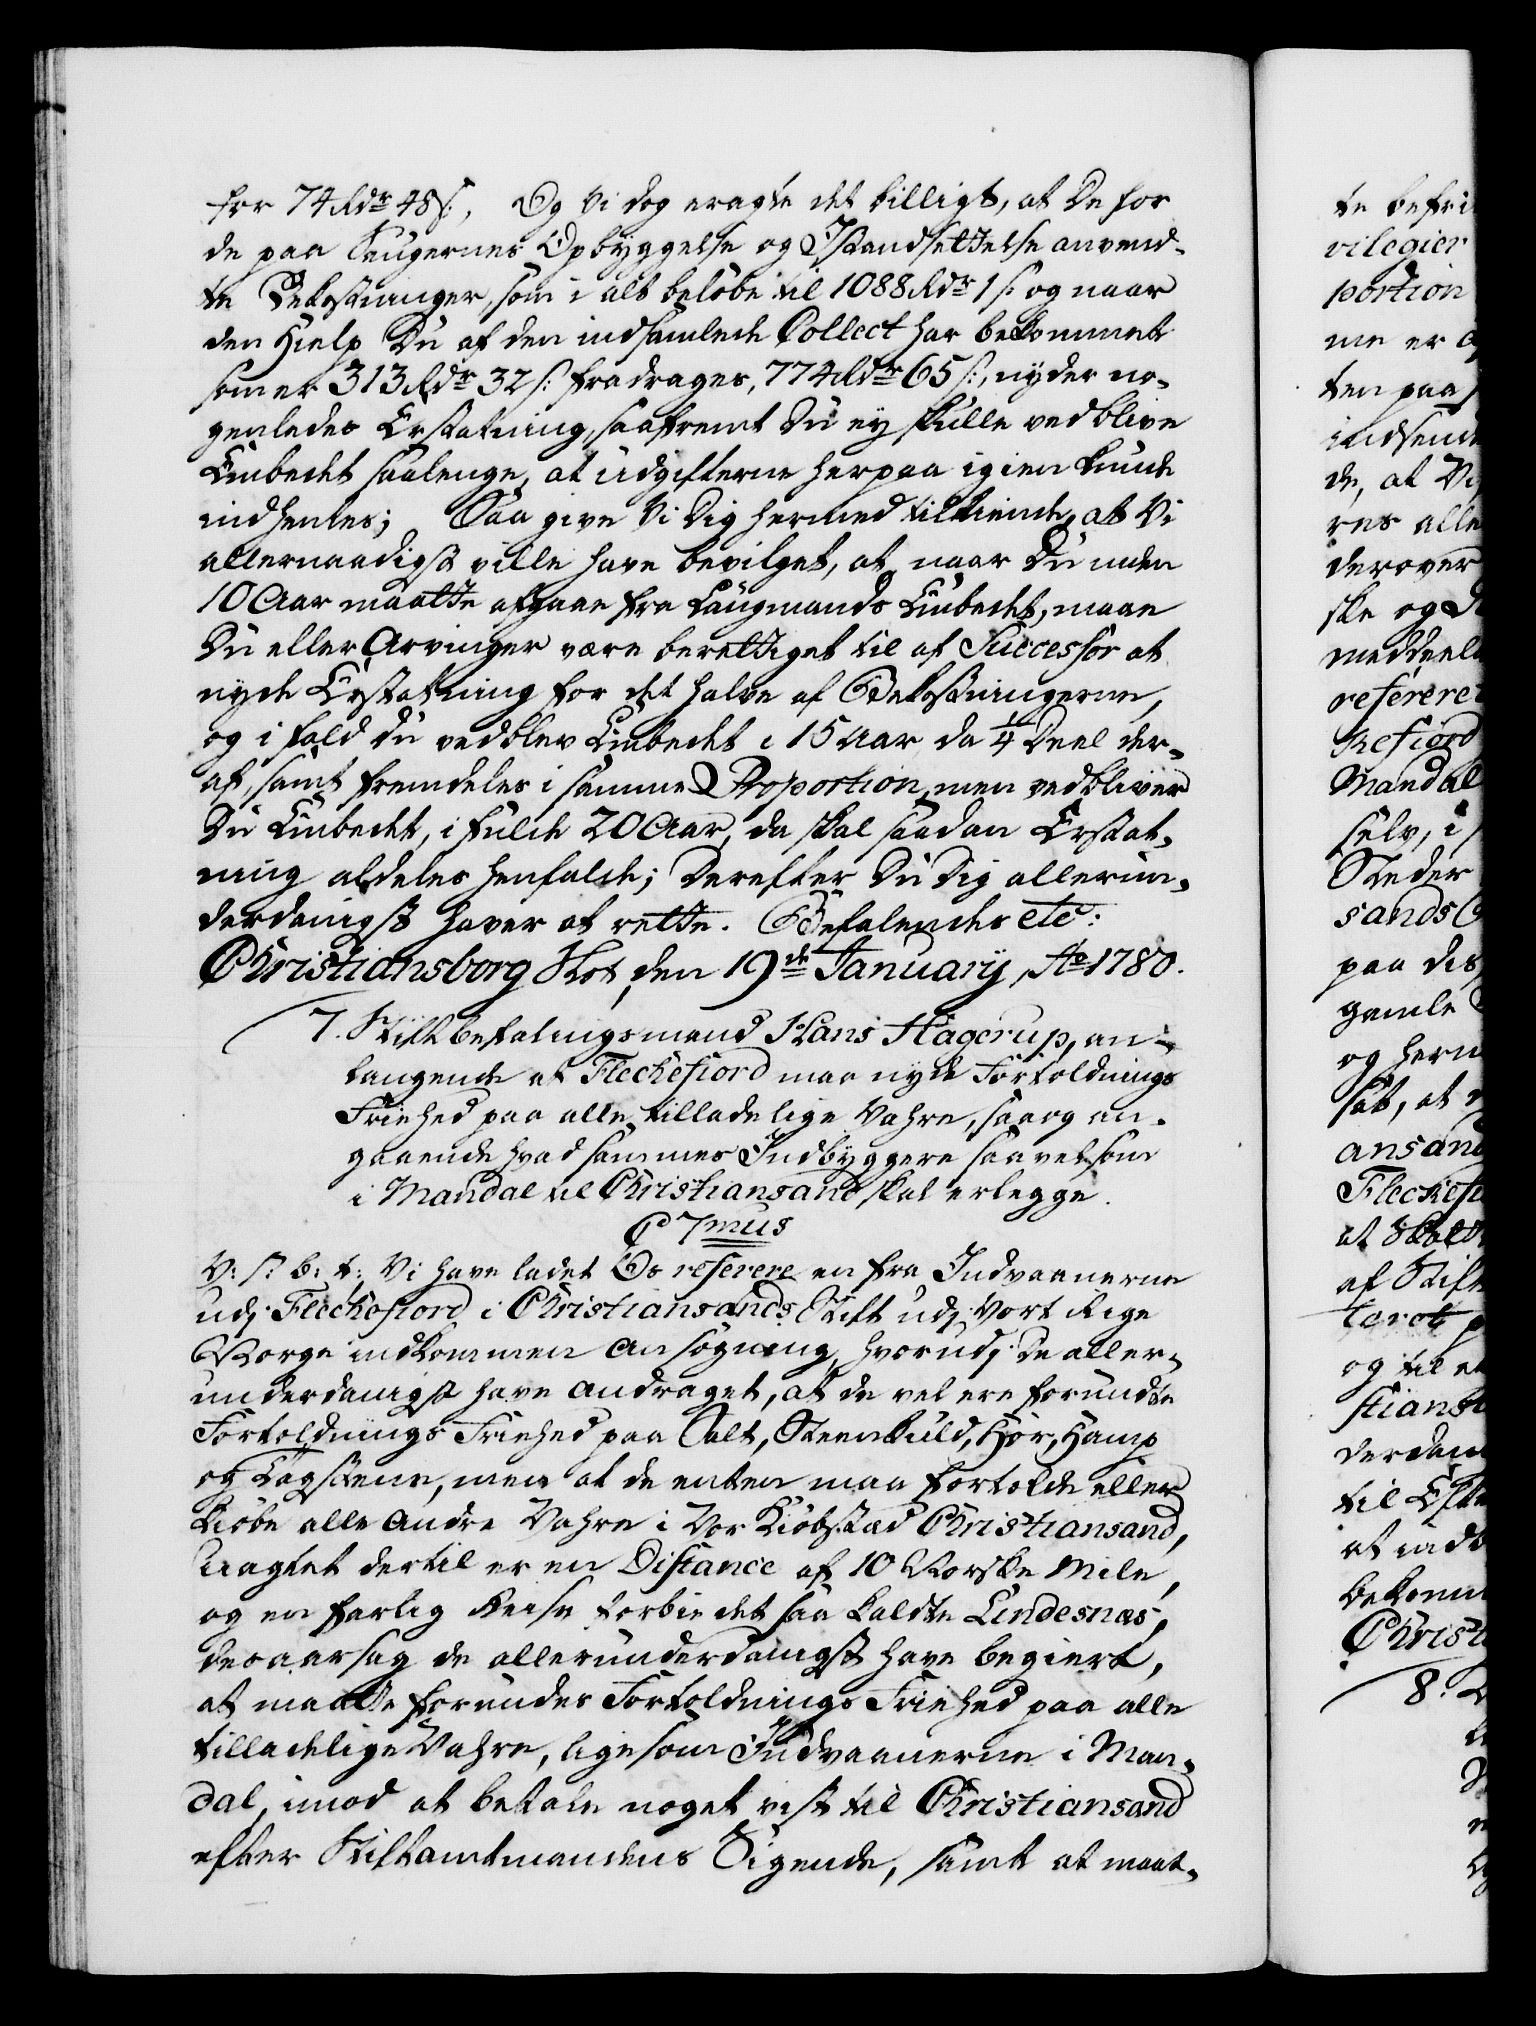 for 74 Rdr 48 s:, Og Vi dog eragte det billigt, at De for
de paa Laugernes Opbyggelse og Istandsettelse anvend-
te Bekostninger, som i alt beløbe til 1088 Rdr 1 s: og naar
den Hielp Du af den indsamlede Collect har bekommet
som er 313 Rdr 32 s: fradrages, 774 Rdr 65 s:, nyder no-
genledes Erstatning, saafremt Du ey skulle ved blive
Embedet saalenge, at udgifterne herpaa igien kunde
indhentes; Saa give Vi Dig hermed tilkiende, at Vi
allernaadigst ville have bevilget, at naar Du inden
10 Aar maatte afgaae fra Laugmands Embedet, maae
Du eller Arvinger være berettiget til af Successor at
nyde Erstatning for det halve af Bekostningerne,
og i fald du vedblev Embedet i 15 Aar da 1/4 Deel der-
af, samt fremdeles i samme Proportion, men vedbliver
Du Embedet, i fulde 20 Aar, da skal saadan Erstat-
ning aldeles henfalde; Derefter Du Dig allerun-
derdanigst haver at rette. Befalendes etc:
Christiansborg Slot, den 19de January, Ao 1780.
7. Stiftbefalingsmand Hans Hagerup, an-
langende at Fleckefiord maa nyde Fortoldnings
Friehed paa alle tilladelige Vahre, saa og an-
gaaende hvad sammes Indbyggere saavelsom
i Mandal til Christiansand skal erlegge.
C 7mus
V: S: b: t: Vi have ladet Os referere en fra Indvaanerne
udj Fleckefiord i Christiansands Stift udj Vort Rige
Norge indkommen Ansøgning, hvorudj De aller-
underdanigst have andraget, at de vel ere forundte
Fortoldnings Friehed paa Salt, Steenkuld, Hør, Hamp
og Tagsteene, men at de enten maa fortolde eller
kiøbe alle andre Vahre i Vor Kiøbstæd Christiansand,
uagtet dertil er en Distance af 10 Norske Mile,
og en farlig Reise forbie det saa kaldte Lindesnæs,
desaarsag de allerunderdanigst have begiert,
at maatte forundes Fortoldnings Friehed paa alle
tilladelige Vahre, ligesom Indvaanerne i Man-
dal, imod at betale noget vist til Christiansand
efter Stiftamtmandens Sigende, samt at maat-
te befri
vilegier
portion
me er
ten paa
indsend
de, at Vi
res alle
derover
ske og
meddeel
referere
Refiord
Mandal
selv, i
Steder
sands
paa des
gamle
og herm
sat, at
ansand
Fleckefi
at
af Stift
og til
stians
derdan
til Efte
at indb
bekomm
Christi
8.